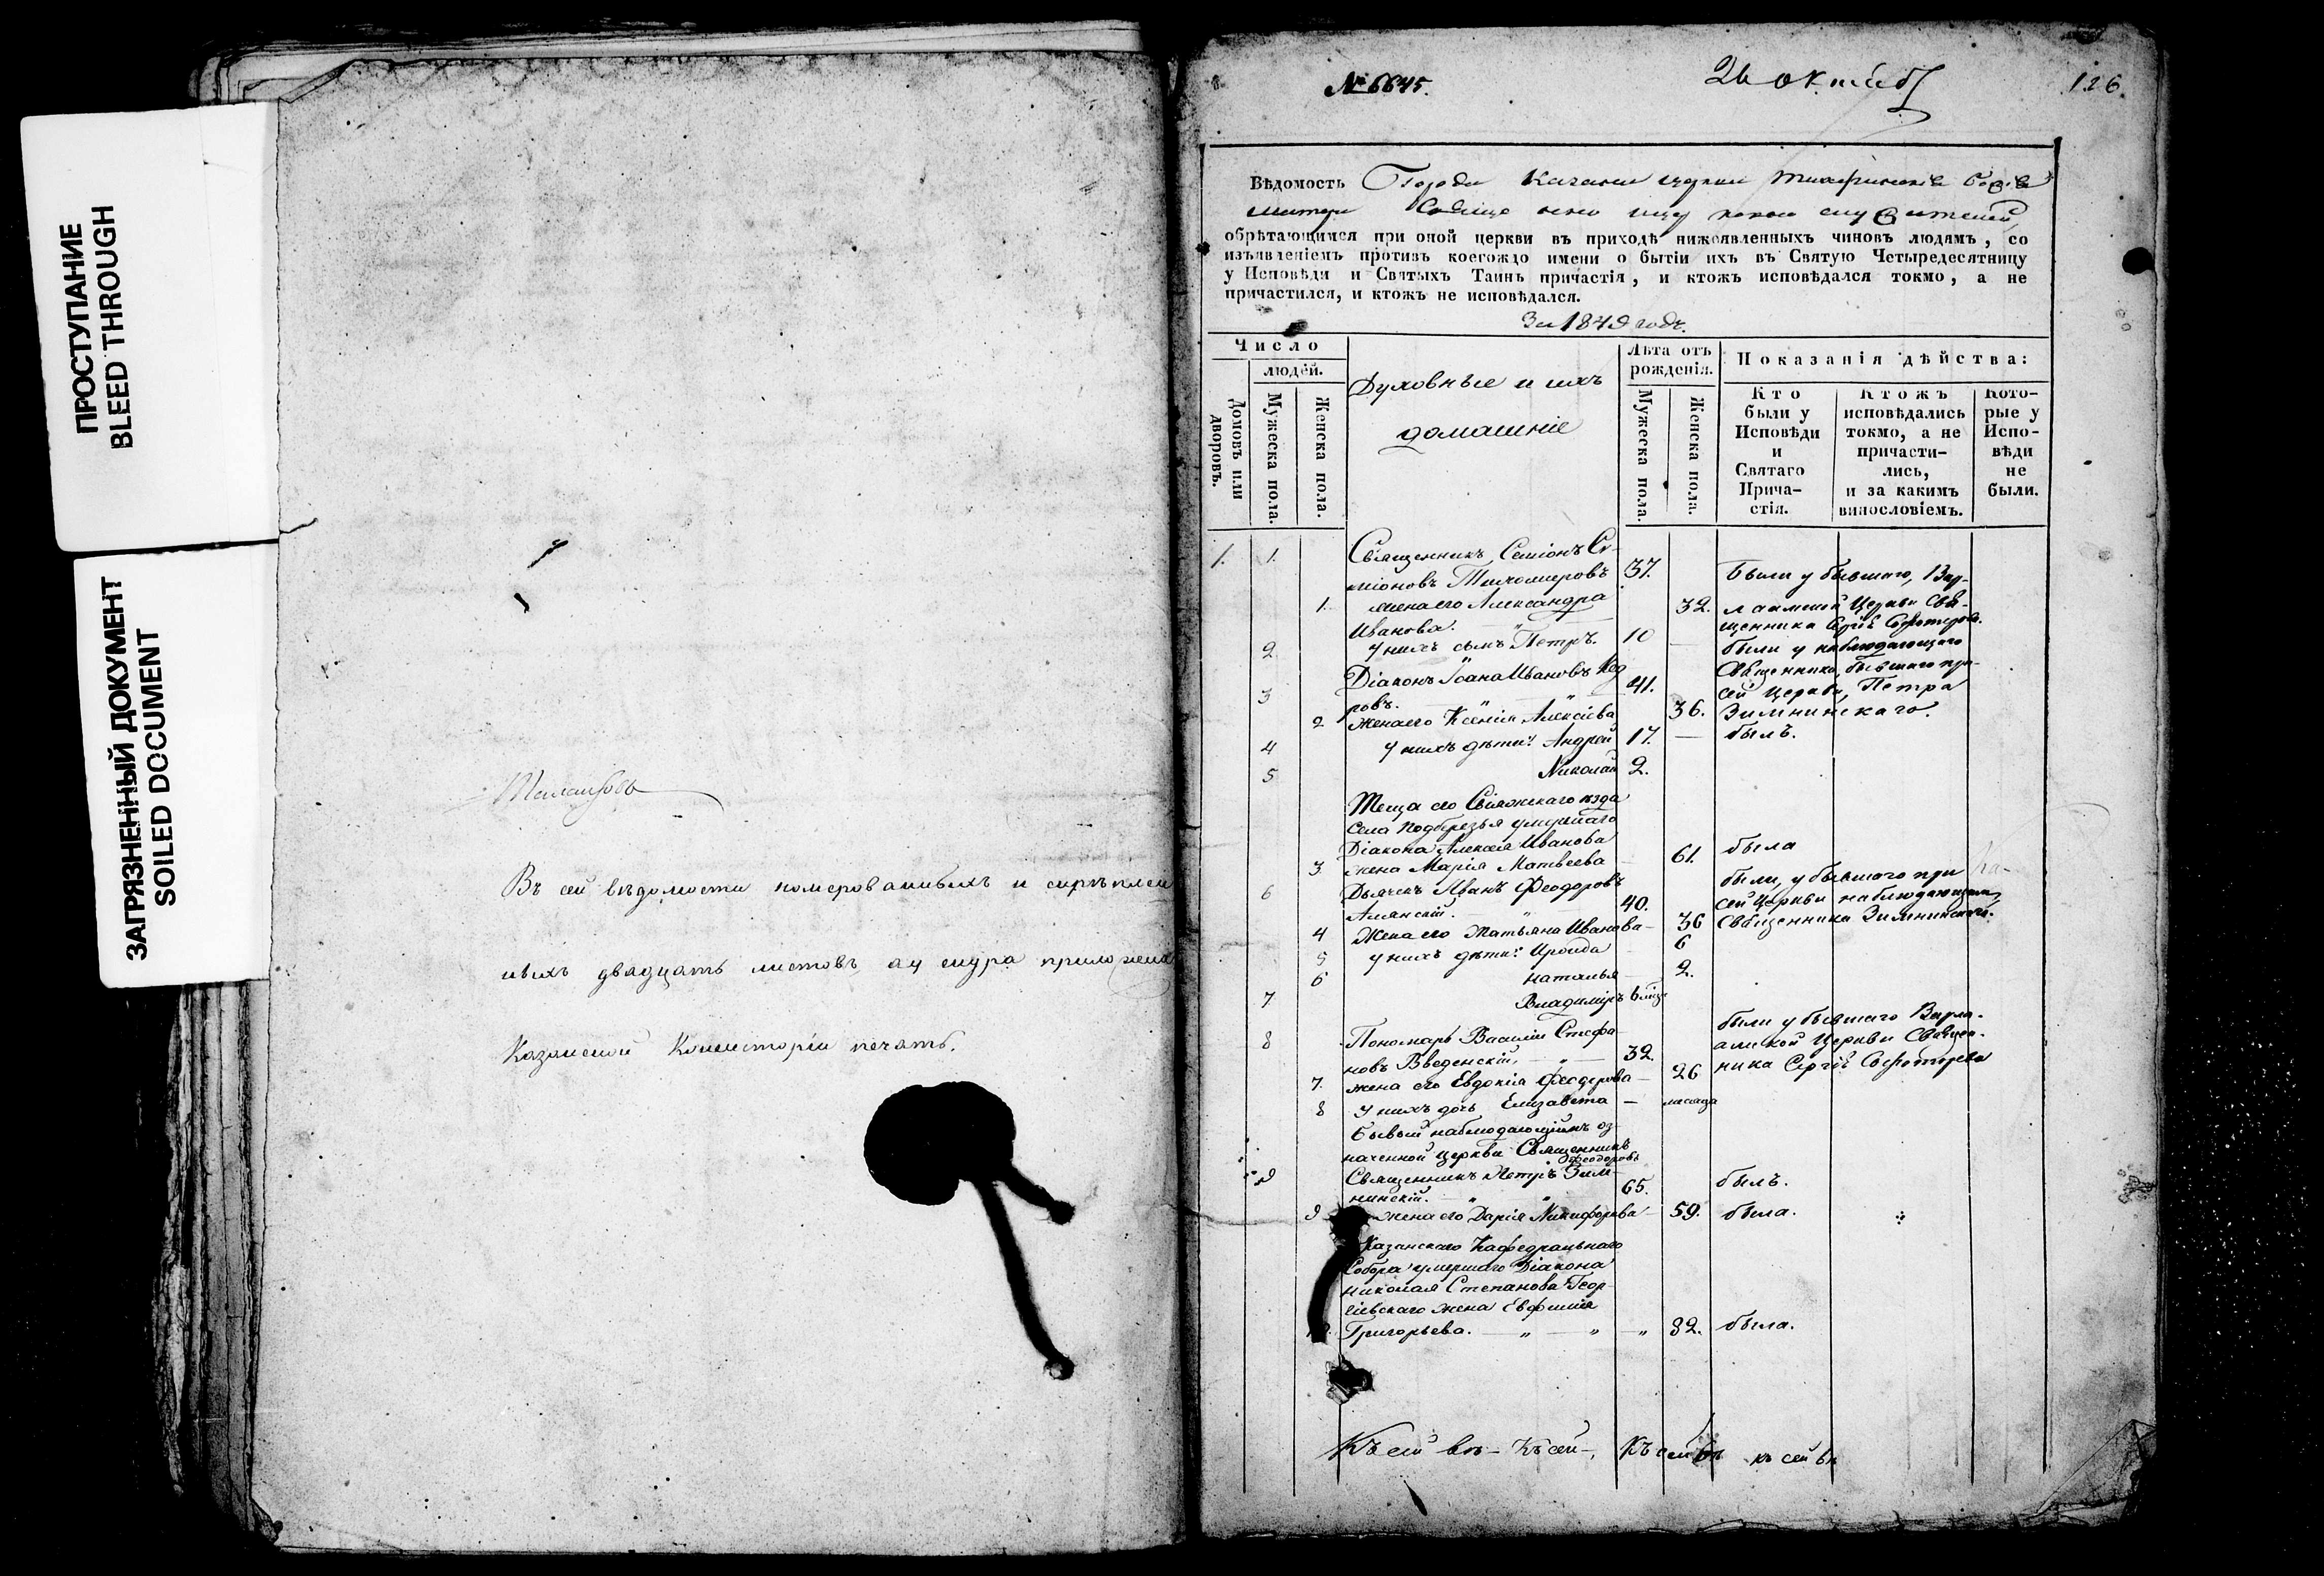 ПРОСТУПАНИЕ
BLEED THROUGH
ЗАГРЯЗНЕННЫЙ ДОКУМЕНТ
SOILED DOCUMENT
Въ сей вѣдомости номерованныхъ и скрѣплен
ныхъ двадцать листовъ а у шнура приложена
Казанской Консисторіи печать.
№ 6645.
26 октяб
126.
Вѣдомость Города Казани церкви Тихвинскія Божія
Матери
обрѣтающимся при оной церкви въ приходѣ нижеявленныхъ чиновъ людямъ, со
изъявленіемъ противъ коегождо имени о бытіи ихъ въ Святую Четыредесятницу
у Исповѣди и Святыхъ Таинъ причастія, и ктожъ исповѣдался токмо, а не
причастился, и ктожъ не исповѣдался.
За 1849 годъ.
Число
людей.
Домовъ или дворовъ.
Мужеска пола.
Женска пола.
Духовные и ихъ
домашніе
Лѣта отъ
рожденія.
Мужеска пола.
Женска пола.
Показанія дѣйства:
Кто
были у
Исповѣди
и
Святаго
Прича-
стія.
Ктожъ
исповѣдались
токмо, а не
причасти-
лись,
и за какимъ
винословіемъ.
Кото-
рые у
Испо-
вѣди
не
были.
1. 1. Священникъ Семіонъ Се-
міоновъ Тихомировъ 37. Были у бывшаго, Вар-
1. жена его Александра 32. лаамской Церкви Свя-
Иванова. щенника Сергія
2 У нихъ сынъ Петръ. 10 были у наблюдающаго
3 Діаконъ Іоаннъ Ивановъ Кед 41. Священника, бывшаго при
ровъ. сей Церкви, Петра
2 Жена его Ксенія Алексіева 36. Зимнинскаго.
4 У нихъ дѣти: Андрей 17. — былъ.
5 Николай 2.
Теща его Свіяжскаго уѣзда
села Подберезья умершаго
Діакона Алексія Иванова
3 жена Марія Матвеева 61. была
6 Дьячекъ Иванъ Феодоровъ 40. были, у бывшаго при
Алянскій. сей Церкви наблюдающимъ
4 Жена его Татьяна Иванова — 36 Священника Зимнинскаго.
5 У нихъ дѣти: Ираида 6
6 Наталья 2.
7 Владимиръ 6 мѣс
8 Пономарь Василій Стефа- были у бывшаго Варла-
новъ Введенскій. 32. амской Церкви Священ-
7. жена его Евдокія Феодорова — 26 ника Сергія
8 У нихъ дочь Елизавета —
Бывый наблюдающимъ оз-
наченной церкви Священникъ
Феодоровъ
9 Священникъ Петръ Зим-
нинскій. 65. былъ.
9 жена его Дарія Никифорова 59. была.
Казанскаго Кафедральнаго
Собора умершаго Діакона
Николая Степанова Геор-
гіевскаго жена Евфимія
Григорьева. — „ — „ — „ 82. была.
Къ сей вѣ- Къ сей-, Къ сей вѣ къ сей вѣ